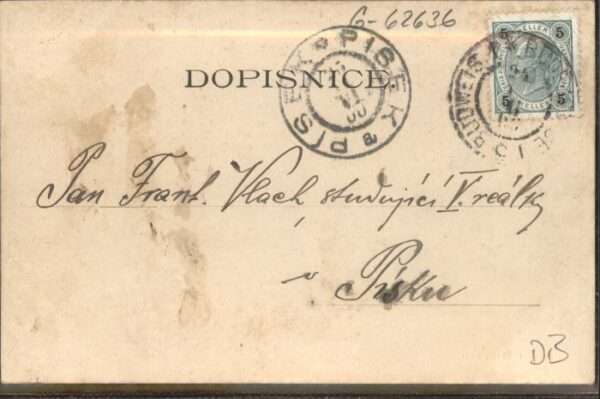 G-62636
DOPISNICE.
PISEK * PISEK a
VI
00
BUDWEIS
5 HELLER 5
5 5
Pan Frant. Vlach, studující V. reálky
v Písku
DB